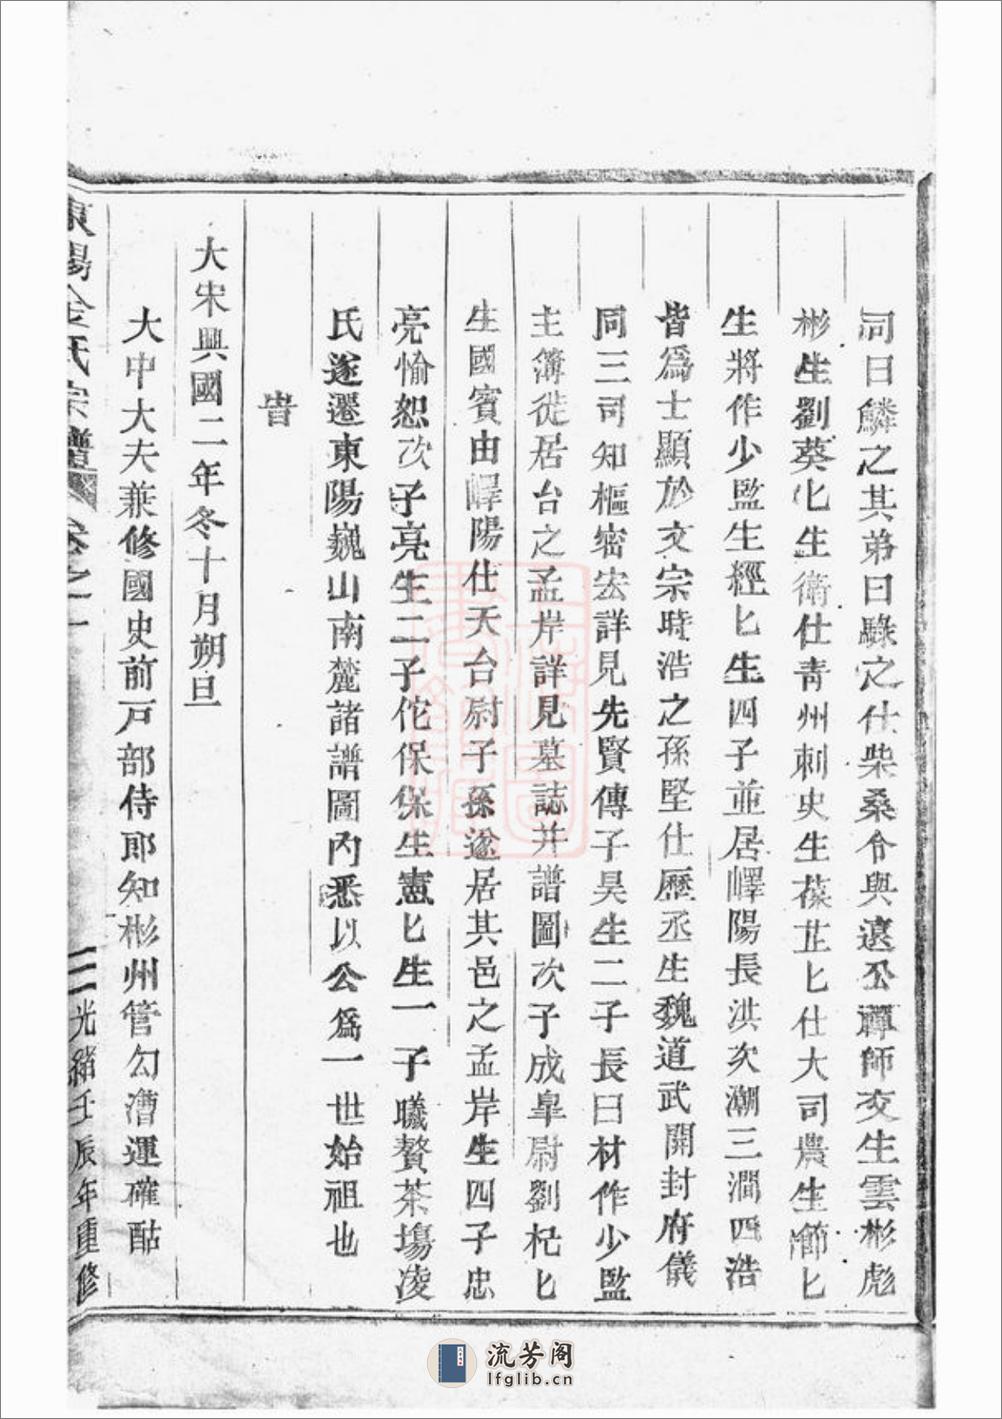 同曰鱗之其弟曰騄之仕柴桑令與遠公禪師友生雲彬彪
彬生劉葵匕生衛仕青州刺史生葆芷匕仕大司農生匕
生將作少監生經匕生四子並居嶧陽長洪次潮三澗四浩
皆爲士顯於文宗時浩之孫堅仕歷丞生魏道武開封府儀
同三司知樞密宏詳見先賢傳子昊生二子長曰材作少監
主簿徙居台之孟岸詳見墓誌并譜圖次子成臯尉劉杞匕
生國賓由嶧陽仕天台尉子孫遂居其邑之孟岸生四子忠
亮愉恕次子亮生二子佗保保生憲匕生一子曦贅茶塲凌
氏遂遷東陽巍山南麓諸譜圖內悉以公爲一世始祖也
旹
大宋興國二年冬十月朔旦
大中大夫兼修國史前戸部侍郎知彬州管勾漕運確酤
東陽金氏宗譜 卷之一 三 光緒壬辰年重修
流芳阁
lfglib.cn